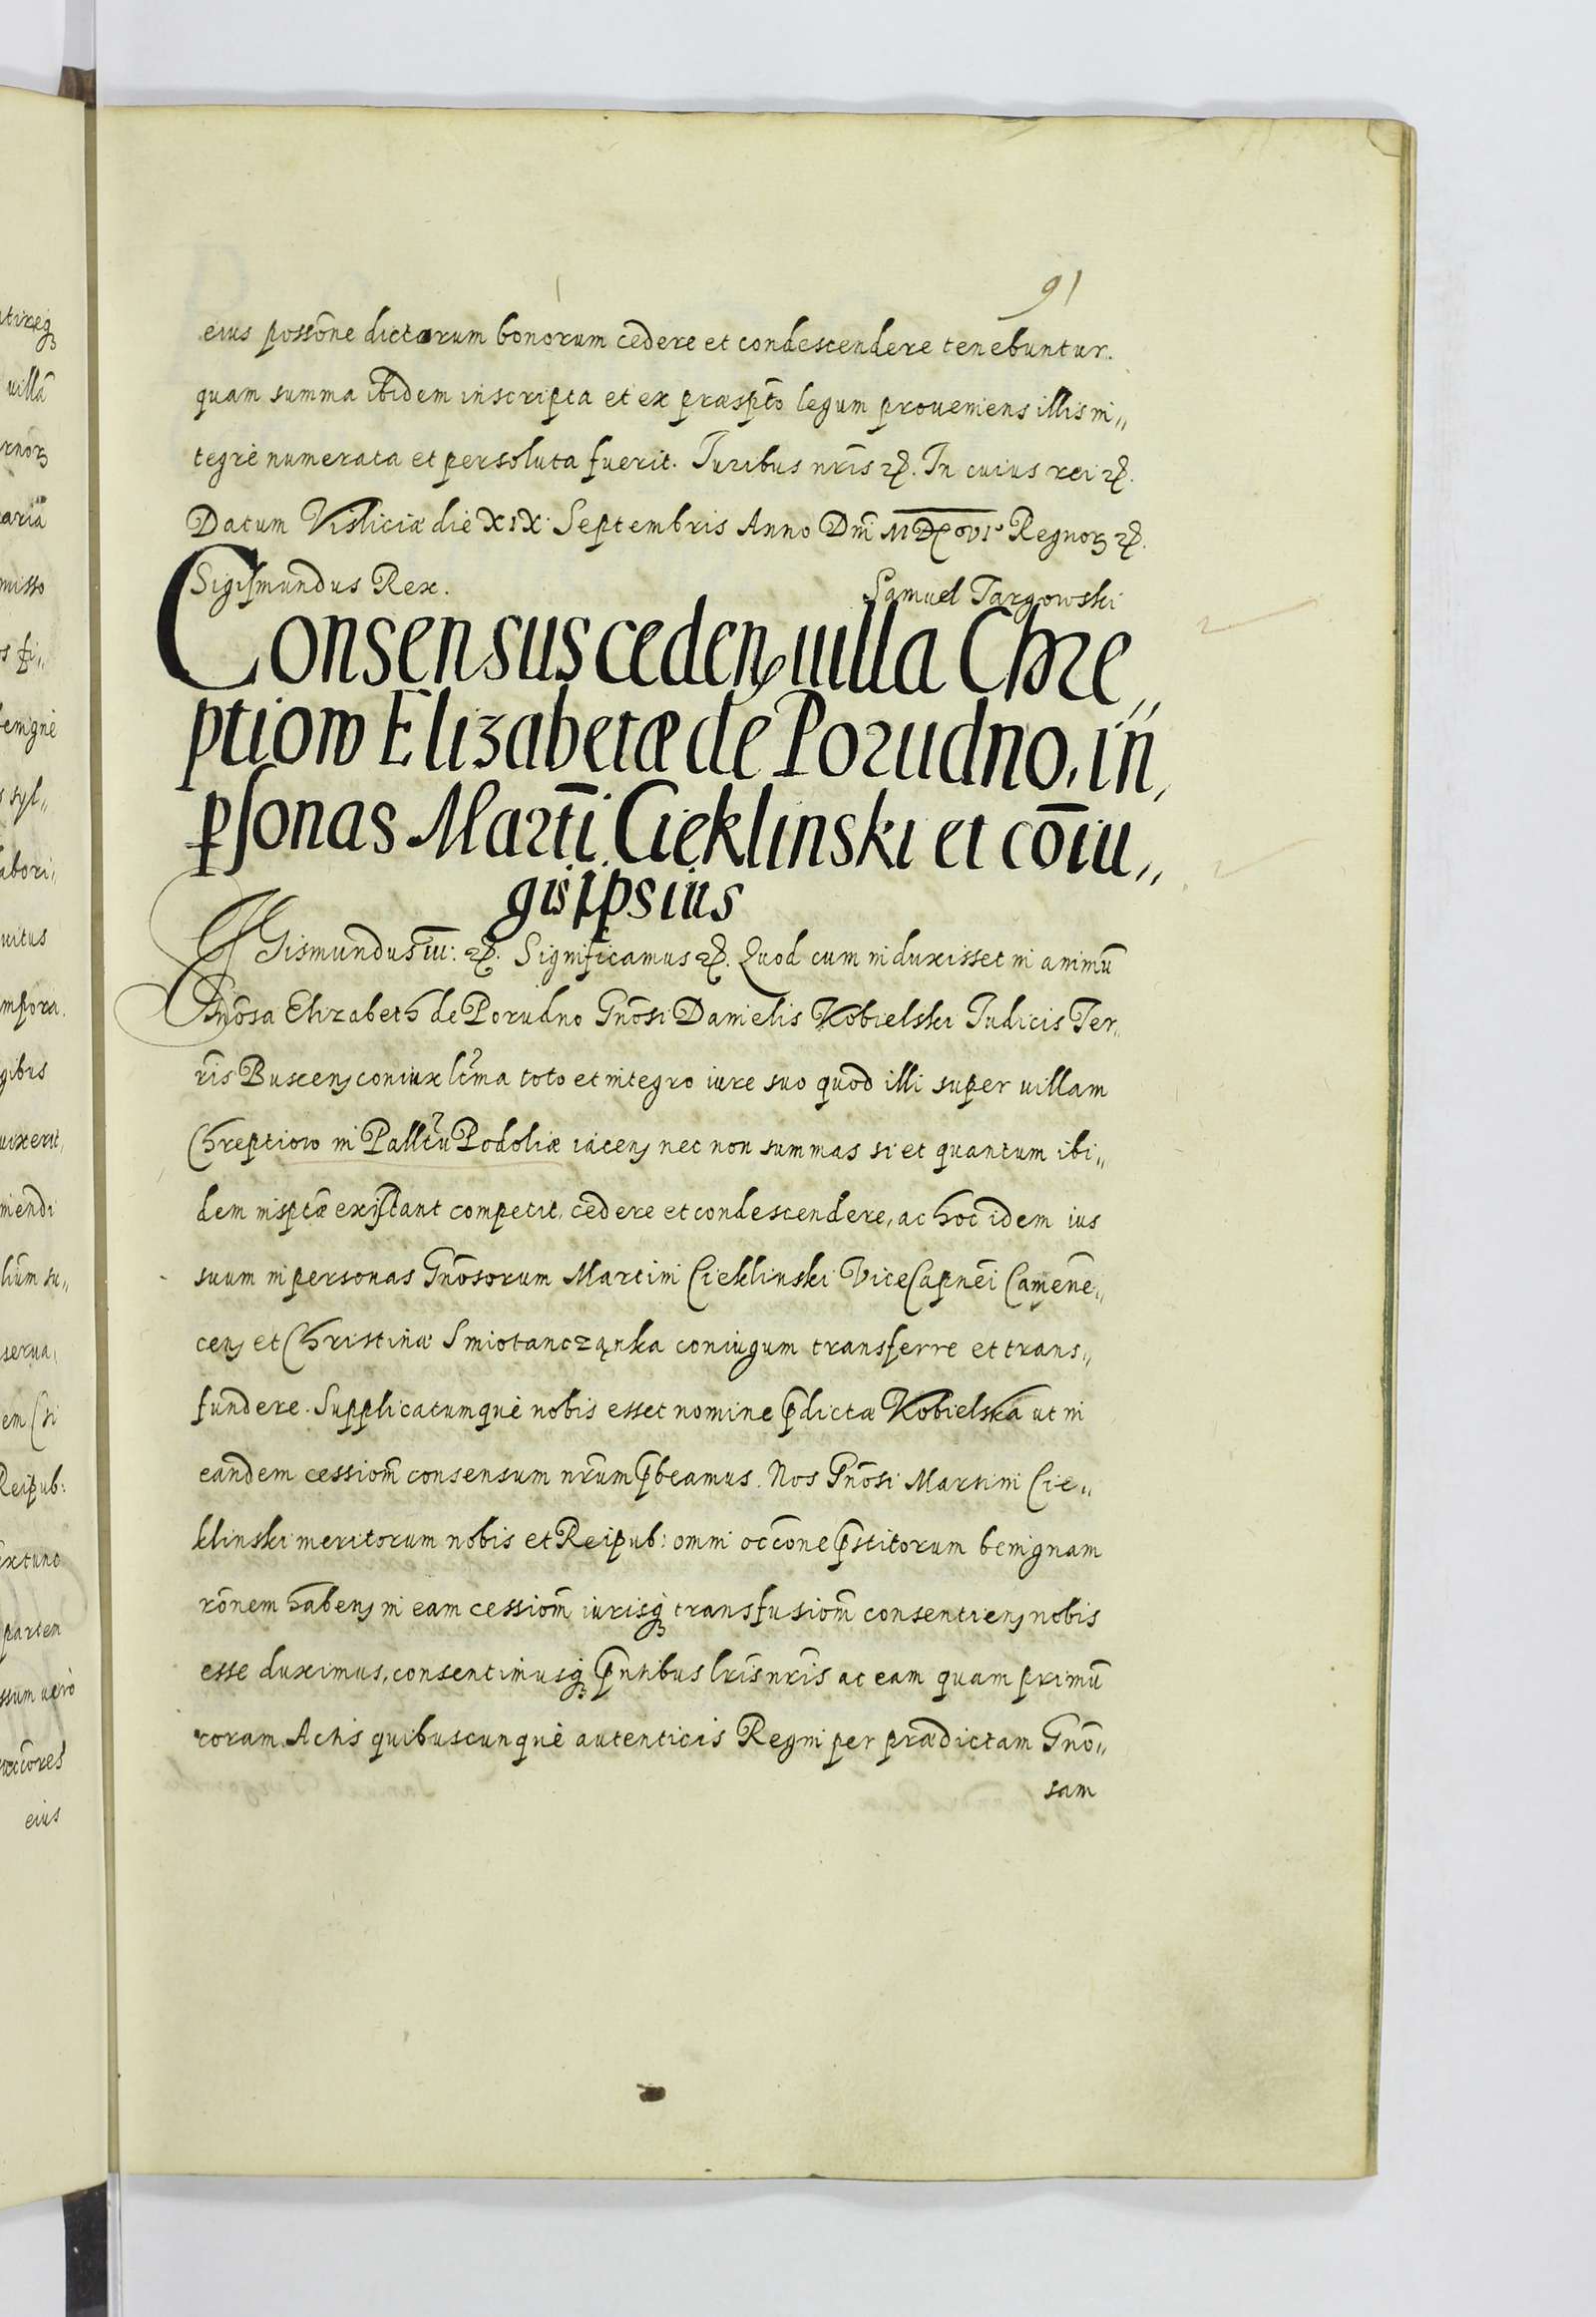 91
eius possōne dictorum bonorum cedere et condescendere tenebuntur.
quam summa ibidem inscripta et ex præsp̄to legum proueniens illis in„
tegrè numerata et persoluta fuerit. Iuribus nr̄is etc. In cuius rei etc.
Datum Visliciæ die XIX. Septembris Anno Dn̄i Regnorꝫ etc.
Sigismundus Rex. Samuel Targowski
Consensus ceden̄ uilla Chre„
ptiow Elizabetæ de Porudno, in,
ꝑsonas Martī Cieklinski et cōiu„
gis ipsius
Sigismundus III: etc. Significamus etc. Quod cum induxisset in animū
Gnōsa Elizabeth de Porudno Gnōsi Danielis Kobielski Iudicis Ter„
rīs Buscen̄ coniux ltīma toto et integro iure suo quod illi super uillam
Chreptiow in Palltū Podoliæ iacen̄ nec non summas si et quantum ibi„
dem insptæ existant competit, cedere et condescendere, ac hoc idem ius
suum in personas Gnōsorum Martini Cieklinski ViceCapnei Camene„
cen̄ et Christinæ Smiotancząnka coniugum transferre et trans„
fundere. Supplicatumquè nobis esset nomine p̄dictæ Kobielska ut in
eandem cessionm̄ consensum nr̄um p̄beamus. Nos Gnōsi Martini Cie„
klinski meritorum nobis et Reipub: omni occōne p̄stitorum benignam
rōnem haben̄ in eam cessionm̄ iurisqꝫ transfusionm̄ consentien̄ nobis
esse duximus, consentimusqꝫ p̄ntibus lrīs nrīs ac eam quam primū
coram Actis quibuscunquè autenticis Regni per prædictam Gnō„
sam